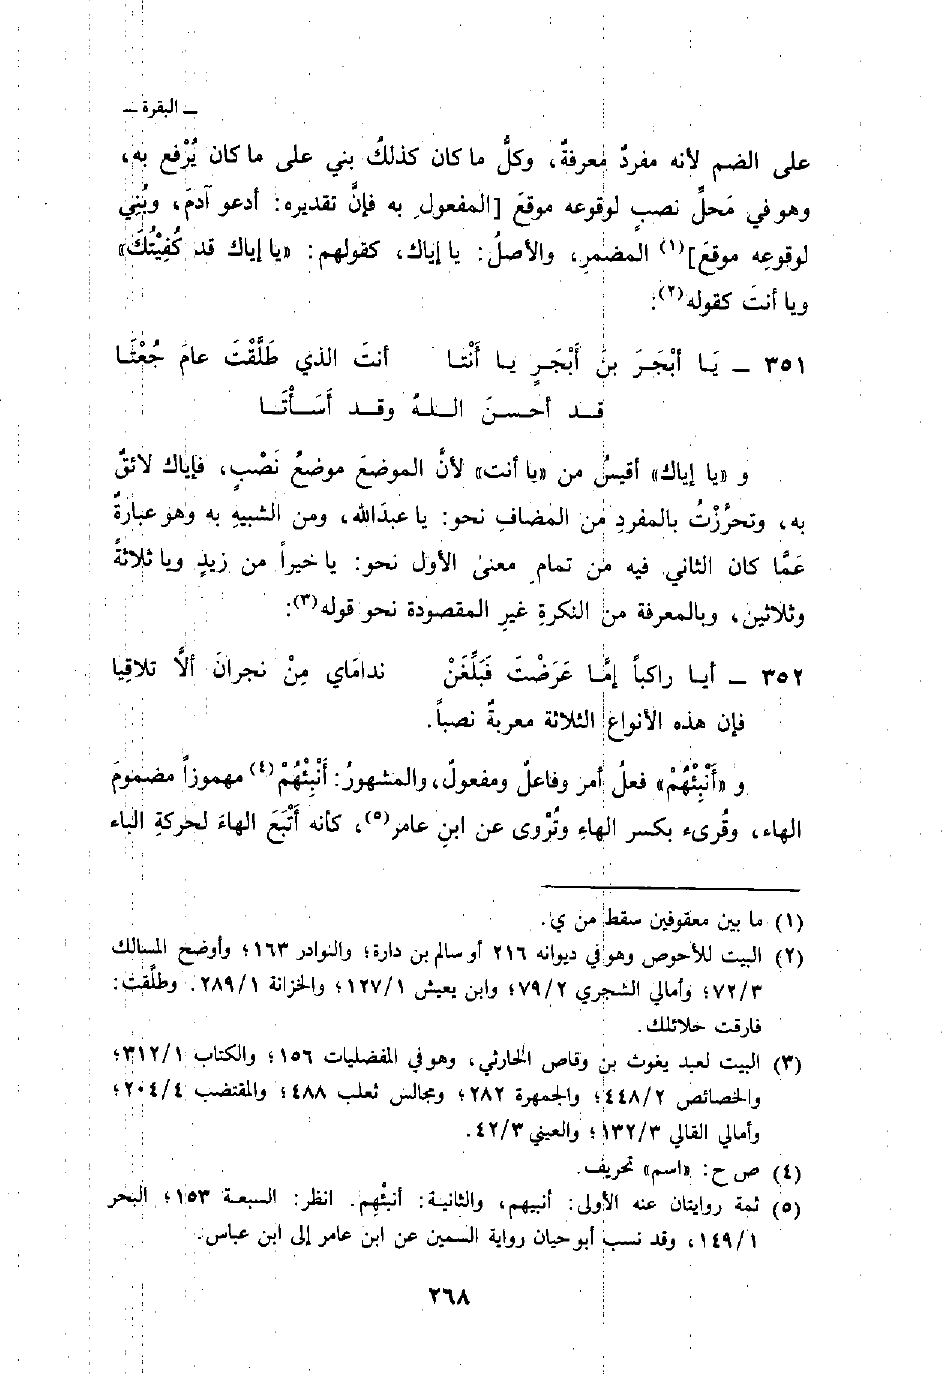 ـ البقرة ـ
على الضم لأنه مفردٌ معرفةٌ، وكلُّ ما كان كذلك بني على ما كان يُرْفع به،
وهو في مَحلِّ نصبٍ لوقوعه موقعَ [المفعول به فإنَّ تقديره: أدعو آدمَ، وبُنِي
لوقوعِه موقعَ](١) المضمرِ، والأصلُ: يا إياك، كقولهم: «يا إياك قد كُفِيْتُكَ»
ويا أنتَ كقوله(٢):
٣٥١ ـ يَـا أبْجَـرَ بنَ أَبْجَـرٍ يـا أَنْتـا أنتَ الذي طَلَّقْتَ عامَ جُعْتَـا
قـد أحسـنَ اللـهُ وقـد أَسَـأْتَـا
و «يا إياك» أقيسُ من «يا أنت» لأنَّ الموضعَ موضعُ نَصْبٍ، فإياك لائقٌ
به، وتحرَّزْتُ بالمفردِ من المضافِ نحو: يا عبدَالله، ومن الشبيهِ به وهو عبارةٌ
عَمَّا كان الثاني فيه من تمام معنىٰ الأول نحو: يا خيراً من زيدٍ ويا ثلاثةً
وثلاثين، وبالمعرفة من النكرةِ غيرِ المقصودة نحو قوله(٣):
٣٥٢ ـ أيـا راكباً إمَّـا عَرَضْتَ فَبَلِّغَنْ نداماي مِنْ نجرانَ ألاَّ تلاقِيا
فإن هذه الأنواع الثلاثة معربةٌ نصباً.
و «أَنْبِئْهُمْ» فعلُ أمر وفاعلٌ ومفعولٌ، والمشهورُ: أَنْبِئْهُمْ(٤) مهموزاً مضمومَ
الهاء، وقُرىء بكسر الهاءِ وتُرْوى عن ابنِ عامر(٥)، كأنه أَتْبَعَ الهاءَ لحركةِ الباء
(١) ما بين معقوفين سقط من ي.
(٢) البيت للأحوص وهو في ديوانه ٢١٦ أو سالم بن دارة؛ والنوادر ١٦٣؛ وأوضح المسالك
٧٢/٣؛ وأمالي الشجري ٧٩/٢؛ وابن يعيش ١٢٧/١؛ والخزانة ٢٨٩/١. وطلَّقت:
فارقت حلائلك.
(٣) البيت لعبد يغوث بن وقاص الحارثي، وهو في المفضليات ١٥٦؛ والكتاب ٣١٢/١؛
والخصائص ٤٤٨/٢؛ والجمهرة ٢٨٢؛ ومجالس ثعلب ٤٨٨؛ والمقتضب ٢٠٤/٤؛
وأمالي القالي ١٣٢/٣؛ والعيني ٤٢/٣.
(٤) ص ح: «اسم» تحريف.
(٥) ثمة روايتان عنه الأولى: أنبيهم، والثانية: أنبئْهِم. انظر: السبعة ١٥٣؛ البحر
١٤٩/١، وقد نسب أبو حيان رواية السمين عن ابن عامر إلى ابن عباس.
٢٦٨